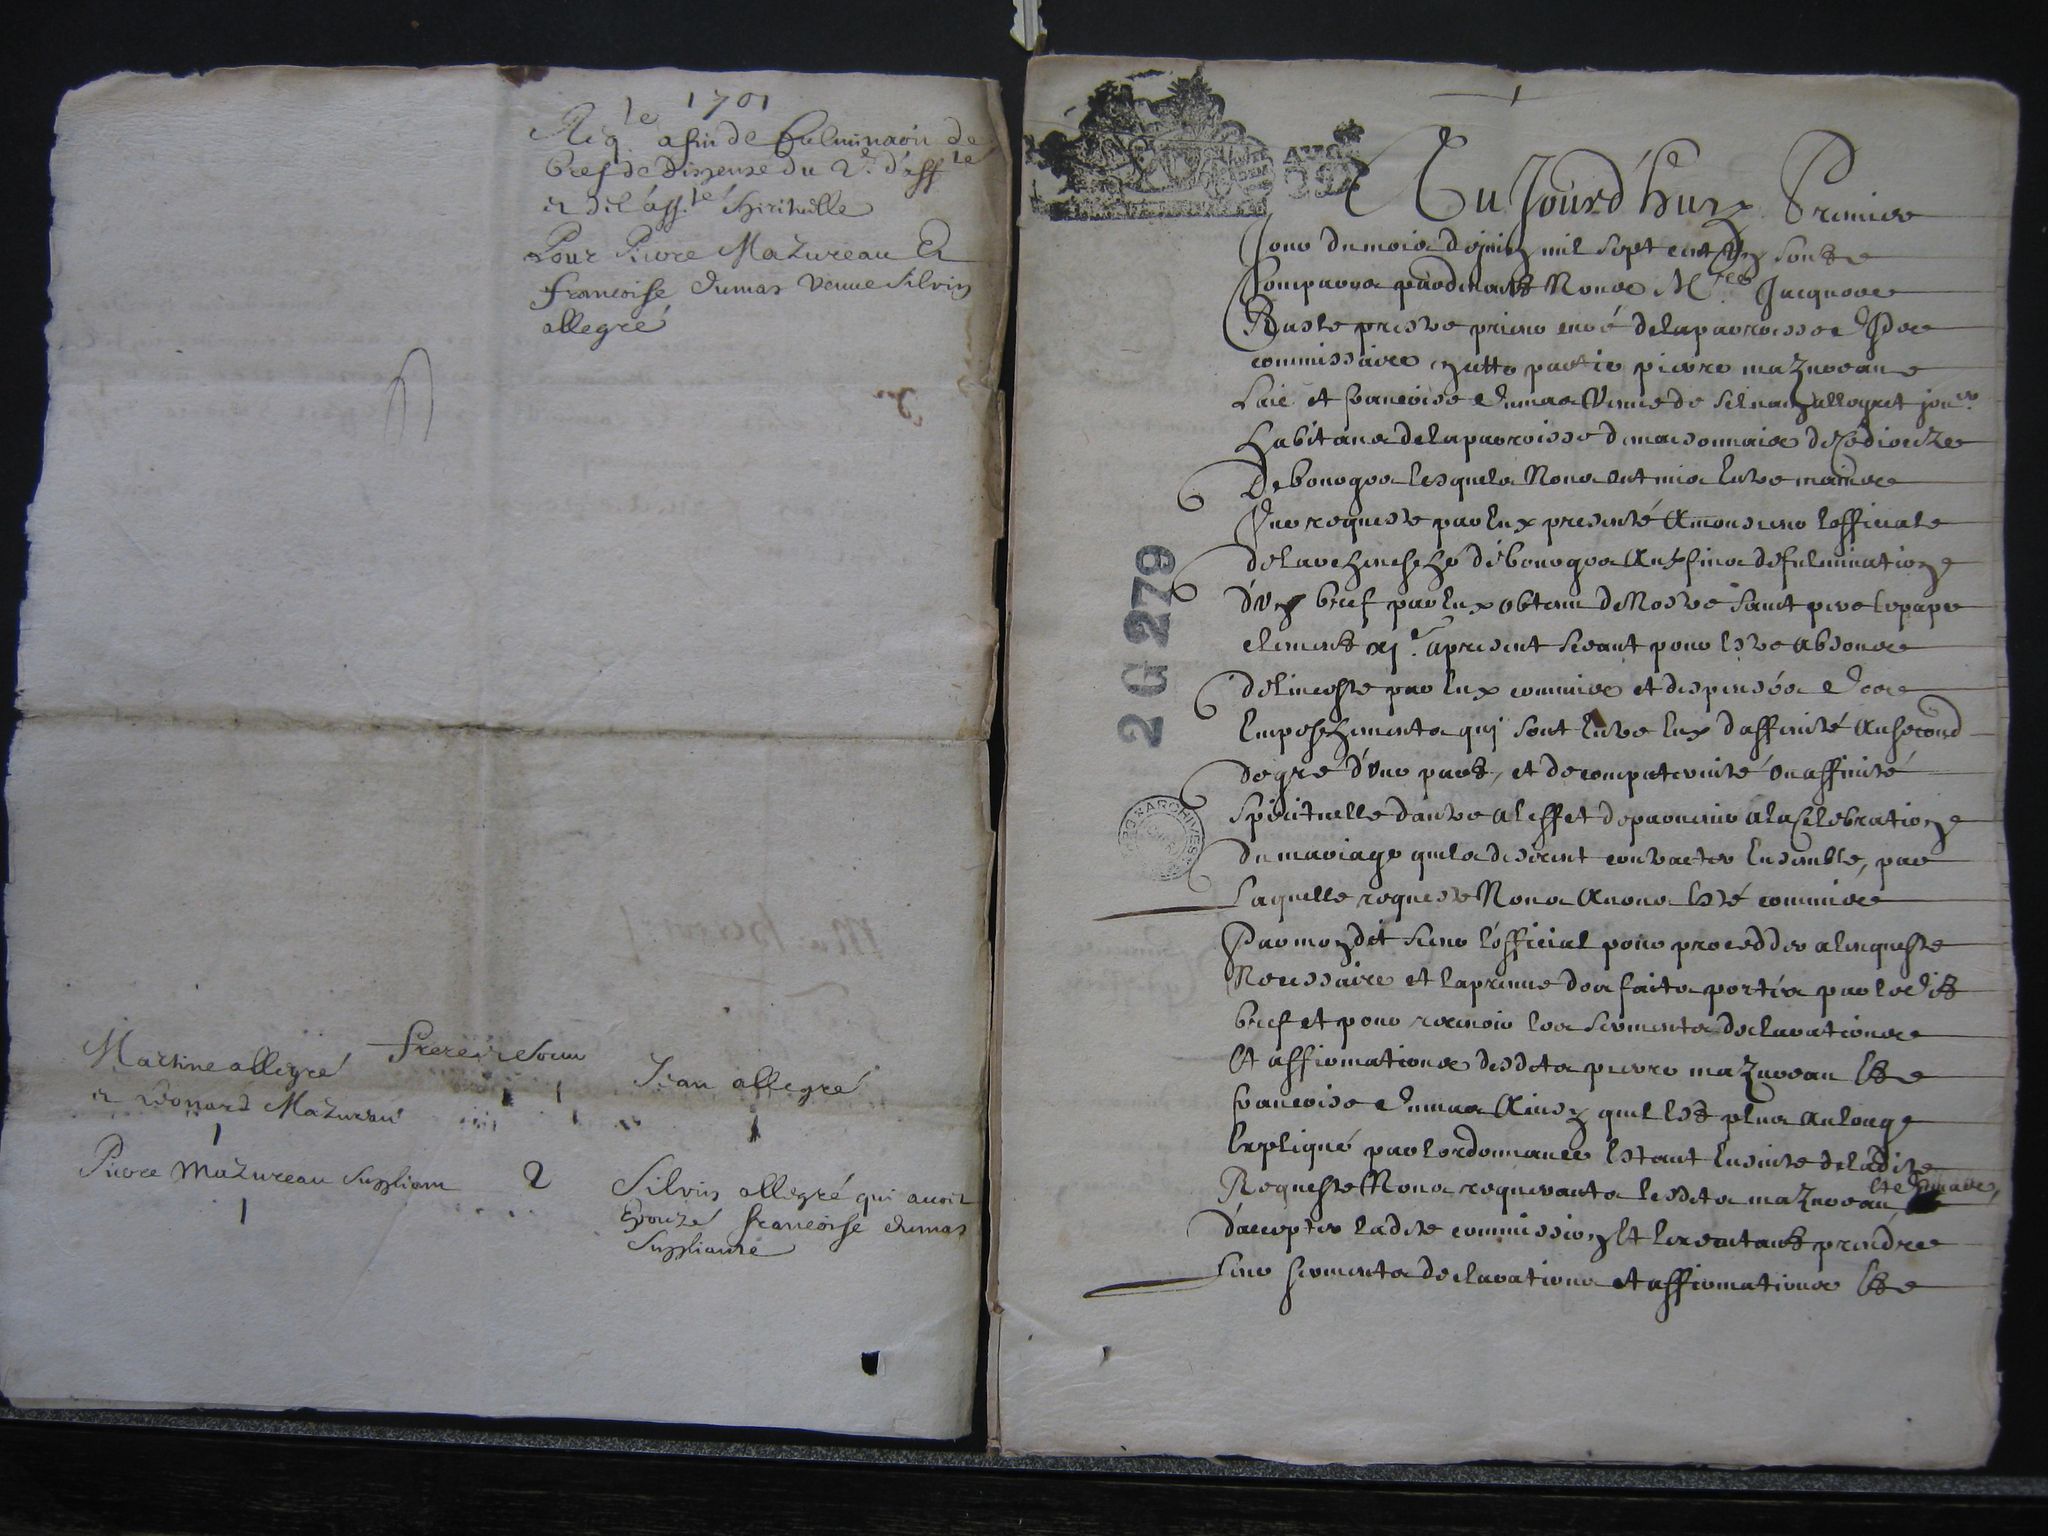 1701
Reqte afin de fulminaon de
bref de dispense du 2e d'affté
et de l'affté spirituelle
Pour Pierre Mazureau Et
françoise dumas veuve silvin
allegré
frere et soeur
Martine allegré
et Leonard Mazureau
Jean allegré
1
1
Pierre Mazureau suppliant
2
Silvin allegré qui avoit
Epouzé françoise dumas
suppliante
1
AUG
2 G 279
ARCHIVES
Aujourd'huy Premier
Jour du mois de juin mil sept cent un sont
Comparus pardevant Nous Mre Jacques
prestre prieur curé de la parroisse
commissaire en cette partie pierre mazureau
et francoise dumas veuve de silvain allegret
habitans de la parroisse de maisonnais diocize
de bourges lesquels Nous ont mis entre mains
Une requeste par eux presenté a monsieur l'official
de l'archevesché de bourges aux fins de fulmination
d'un bref par eux obtenu de Nostre saint pere le pape
clement xje apresent seant pour estre absous
de l'inceste par eux commise et dispensés des
Empeschements qui sont entre eux d'affinité au second
degré d'une part, et de compaternité ou affinité
spirituelle d'autre a l'effet de parvenir a la celebration
du mariage quils desirent contracter ensemble, par
laquelle requeste Nous avons esté commis
Par mondit sieur l'official pour procedder a l'enqueste
Necessaire et la preuve des faits portés par ledit
bref et pour recevoir les serments declarations
Et affirmations desdits pierre mazureau et
francoise dumas ainsy quil est plus au long
Expliqué par l'ordonnance estant ensuite de ladite
Requeste Nous requerants lesdits mazureau et dumas,
d'accepter ladite commission Et prendre
leur serments declarations et affirmations et